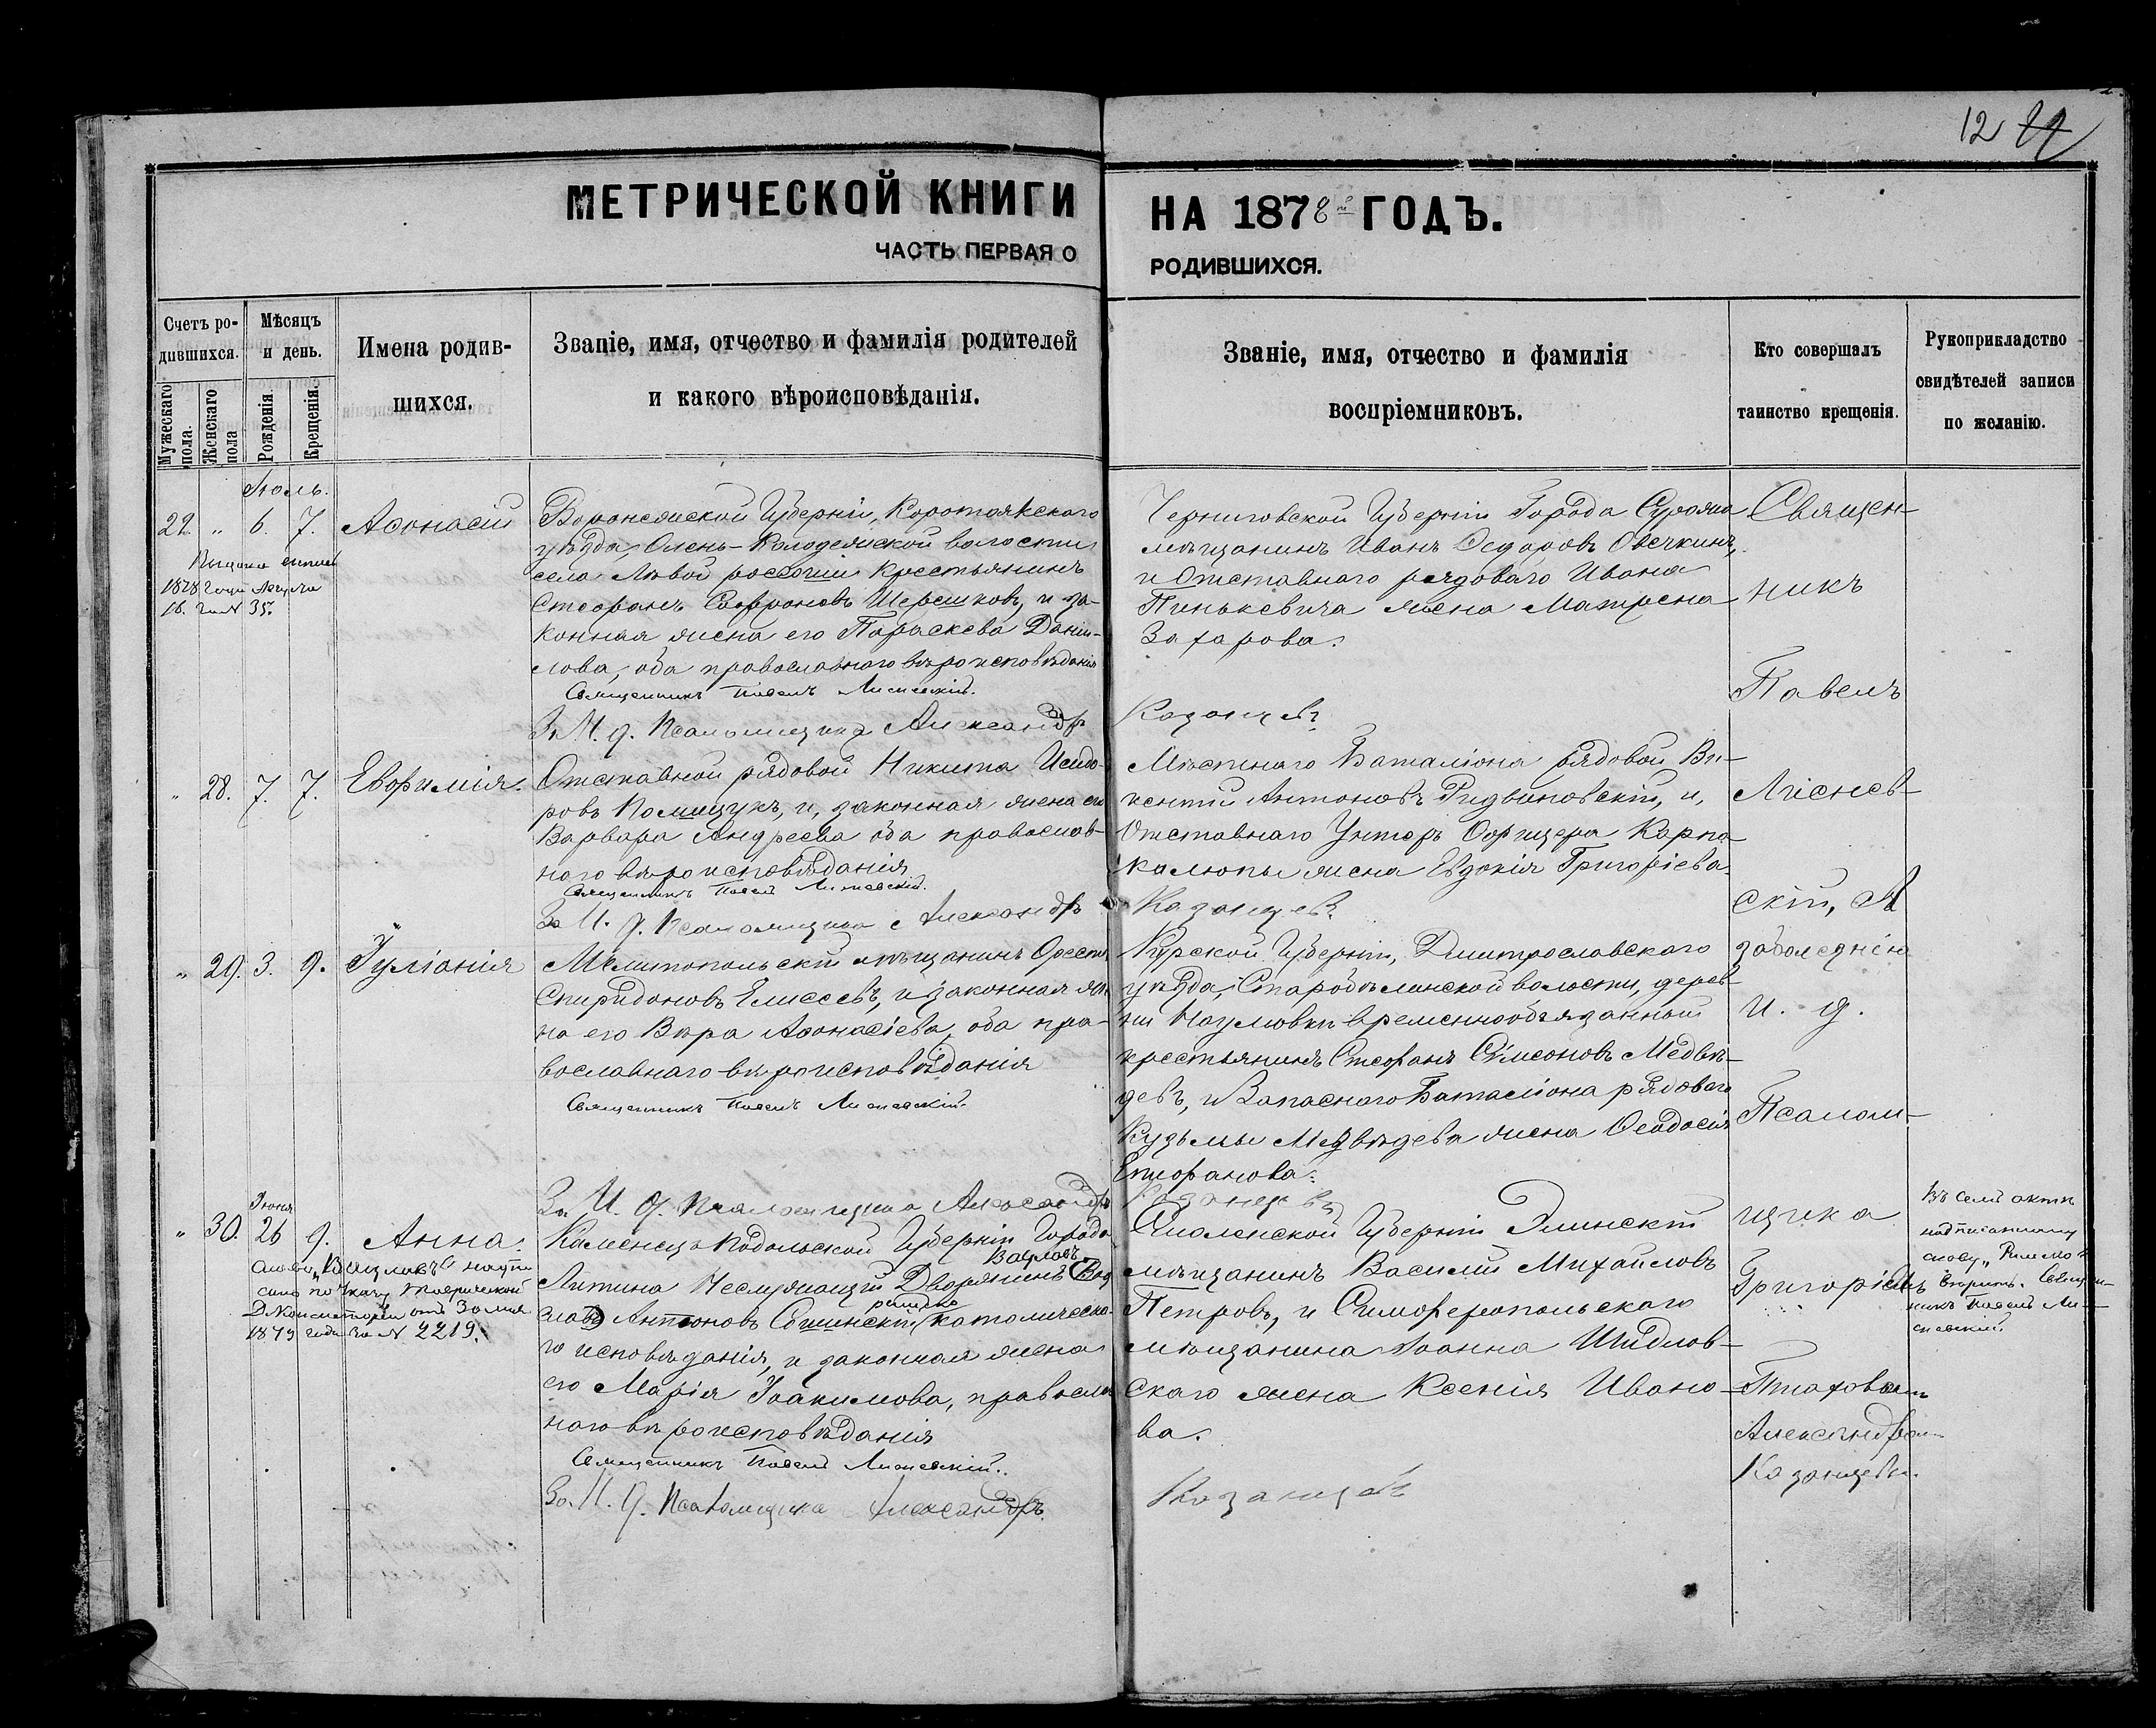 12
МЕТРИЧЕСКОЙ КНИГИ
НА 1878 ГОДЪ.
ЧАСТЬ ПЕРВАЯ О
РОДИВШИХСЯ.
Счетъ ро-
дившихся.
Мужескаго пола.
Женскаго пола
Мѣсяцъ
и день.
Рожденія.
Крещенія.
Имена родив-
шихся.
Званіе, имя, отчество и фамилія родителей
и какого вѣроисповѣданія.
Званіе, имя, отчество и фамилія
воспріемниковъ.
Кто совершалъ
таинство крещенія.
Рукоприкладство
свидѣтелей записи
по желанію.
Іюль.
22. " 6. 7. Аѳонасій
1878 года Августа
16. за N 35.
Воронежской Губерніи, Коротоякскаго
уѣзда, Олень-Колодежской волости
села Лѣвой россоши крестьянинъ
Стефанъ Софроновъ Шерешковъ, и за-
конная жена его Параскева Даніи-
лова, оба православнаго вѣроисповѣданія
Священникъ Павелъ Лисневскій.
За И. д. Псаломщика Александръ
Черниговской Губерніи Города Суража
мѣщанинъ Иванъ Сидоровъ Овечкинъ,
и Отставнаго рядоваго Ивана
Пинькевича жена Матрена
Захарова.
Казанцевъ
" 28. 7. 7. Евфимія.
Отставной рядовой Никита Исидо-
ровъ Полищукъ, и, законная жена его
Варвара Андреева оба православ-
наго вѣроисповѣданія
Священникъ Павелъ Лисневскій.
За И. д. Псаломщика Александръ
Мѣстнаго Баталіона рядовой Ви-
кентій Антоновъ Ридвановскій, и,
Отставнаго Унтеръ Офицера Карпа
Калюпы жена Евдокія Григоріева.
Казанцевъ
" 29. 3. 9. Іуліанія
Мелитопольскій мѣщанинъ Орестъ
Спиридоновъ Елисеевъ, и законная же-
на его Вѣра Аѳонасіева, оба пра-
вославнаго вѣроисповѣданія
Священникъ Павелъ Лисневскій.
За И. д. Псаломщика Александръ
Курской Губерніи, Дмитрославскаго
уѣзда, волости, дерев-
ни Наумовки временнообязанный
крестьянинъ Стефанъ Симеоновъ Медвѣ-
девъ, и Запаснаго Баталіона рядоваго
Кузьмы Медвѣдева жена Ѳеодосія
Епифанова.
Казанцевъ
Іюня
" 30. 26 9. Анна.
слово "Вацлавъ" напи-
сано по Указу Таврической
Д. Консисторіи отъ 30 мая
1879 года за N 2219.
Каменецъ Подольской Губерніи Города
Вацлавъ
Литина Дворянинъ
римско
Антоновъ католическа-
го исповѣданія, и законная жена
его Марія Іоакимова, православ-
наго вѣроисповѣданія
Священникъ Павелъ Лисневскій.
За. И. д. Псаломщика Александръ.
Смоленской Губерніи Элинскій
мѣщанинъ Василій Михайловъ
Петровъ, и Симферопольскаго
мѣщанина Іоанна Шидлов-
скаго жена Ксенія Ивано-
ва.
Казанцевъ
Священ-
никъ
Павелъ
Лиснев-
скій,
за
и. д.
Псалом-
щика
Григорія
Александръ
Казанцевъ.
Въ семъ актѣ
надписанному
слову "Римско"
вѣрить. Священ-
никъ Павелъ Ли-
сневскій.